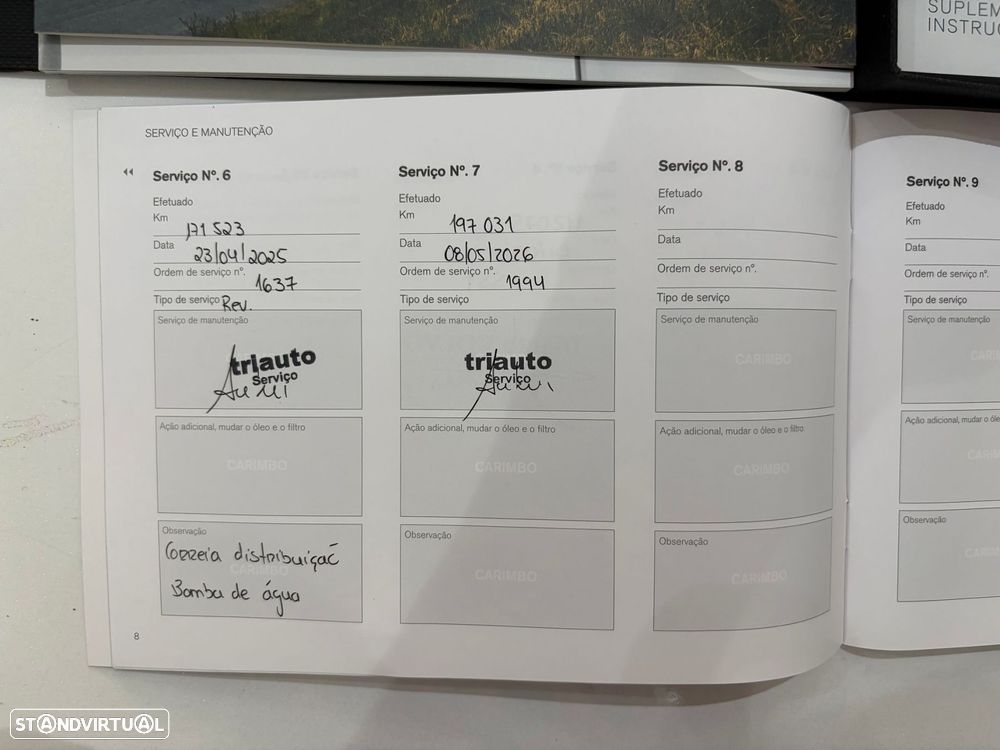 SUPLEM
INSTRUC
SERVIÇO E MANUTENÇÃO
Serviço Nº. 6
Efetuado
Km 171 523
Data 23/04/2025
Ordem de serviço nº. 1637
Tipo de serviço Rev.
Serviço de manutenção
triauto
Serviço
Ação adicional, mudar o óleo e o filtro
CARIMBO
Observação
CARIMBO
Correia distribuiçaõ
Bomba de água
Serviço Nº. 7
Efetuado
Km 197 031
Data 08/05/2026
Ordem de serviço nº. 1994
Tipo de serviço
Serviço de manutenção
triauto
Serviço
Ação adicional, mudar o óleo e o filtro
CARIMBO
Observação
CARIMBO
Serviço Nº. 8
Efetuado
Km
Data
Ordem de serviço nº.
Tipo de serviço
Serviço de manutenção
CARIMBO
Ação adicional, mudar o óleo e o filtro
CARIMBO
Observação
CARIMBO
Serviço Nº. 9
Efetuado
Km
Data
Ordem de serviço nº.
Tipo de serviço
Serviço de manutenção
CARIM
Ação adicional, mudar o óle
CARIM
Observação
CARIM
8
STANDVIRTUAL